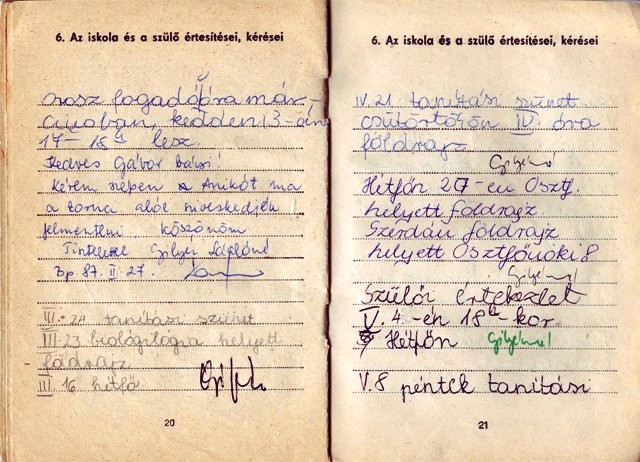 6. Az iskola és a szülő értesítései, kérései
orosz fogadóóra már-
ciusban, kedden 3-án
17-18h lesz.
Kedves Gábor bácsi!
Kérem szépen az Anikót ma
a torna alól szíveskedjék
felmenteni köszönöm
Tisztelettel Gilyén Lászlóné
Bp. 87. II. 27.
III. 24 tanítási szünet
III. 23 biológia helyett
földrajz
III. 16 hétfő
20
6. Az iskola és a szülő értesítései, kérései
IV. 21. tanítási szünet
csütörtökön IV. óra
földrajz
Hétfőn 27-én Osztf.
helyett földrajz
Szerdán földrajz
helyett Osztfőnöki 8
Szülői értekezlet
V. 4-én 18h-kor
Hétfőn
V. 8 péntek tanítási
21